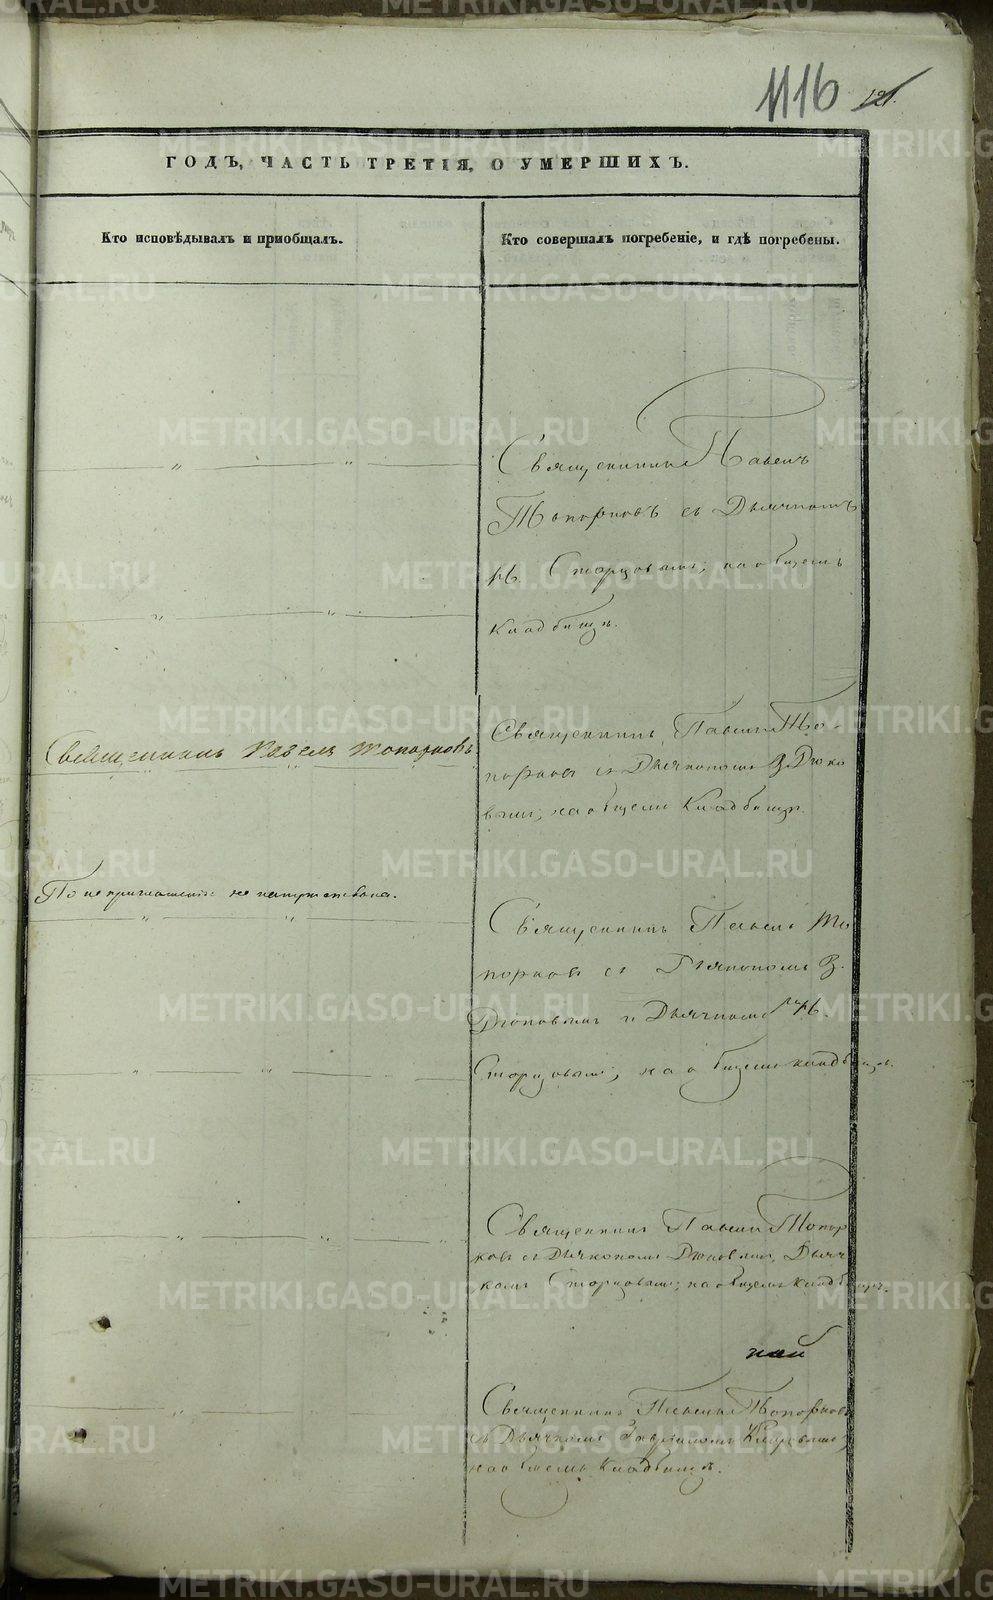 1116 121.
ГОДЪ, ЧАСТЬ ТРЕТІЯ, О УМЕРШИХЪ.
Кто исповѣдывалъ и приобщалъ.
Кто совершалъ погребеніе, и гдѣ погребены.
Священникъ Павелъ
Топорковъ съ Дьячкомъ
Старцовымъ; на общемъ
Кладбищѣ.
Священникъ Павелъ Топорковъ
Священникъ Павелъ То-
порковъ съ Дьякономъ
на общемъ Кладбищѣ.
По неприглашенію не напутствована.
Священникъ Павелъ То
порковъ съ Діякономъ
и Дьячкомъ
Старцовымъ; на общемъ кладбищѣ.
Священникъ Павелъ Топор
ковъ съ Дьякономъ Дьяч
комъ Старцовымъ; на общемъ кладбищѣ.
Священникъ Павелъ Топорковъ
съ Дьячкомъ
на общемъ Кладбищѣ.
METRIKI.GASO-URAL.RU